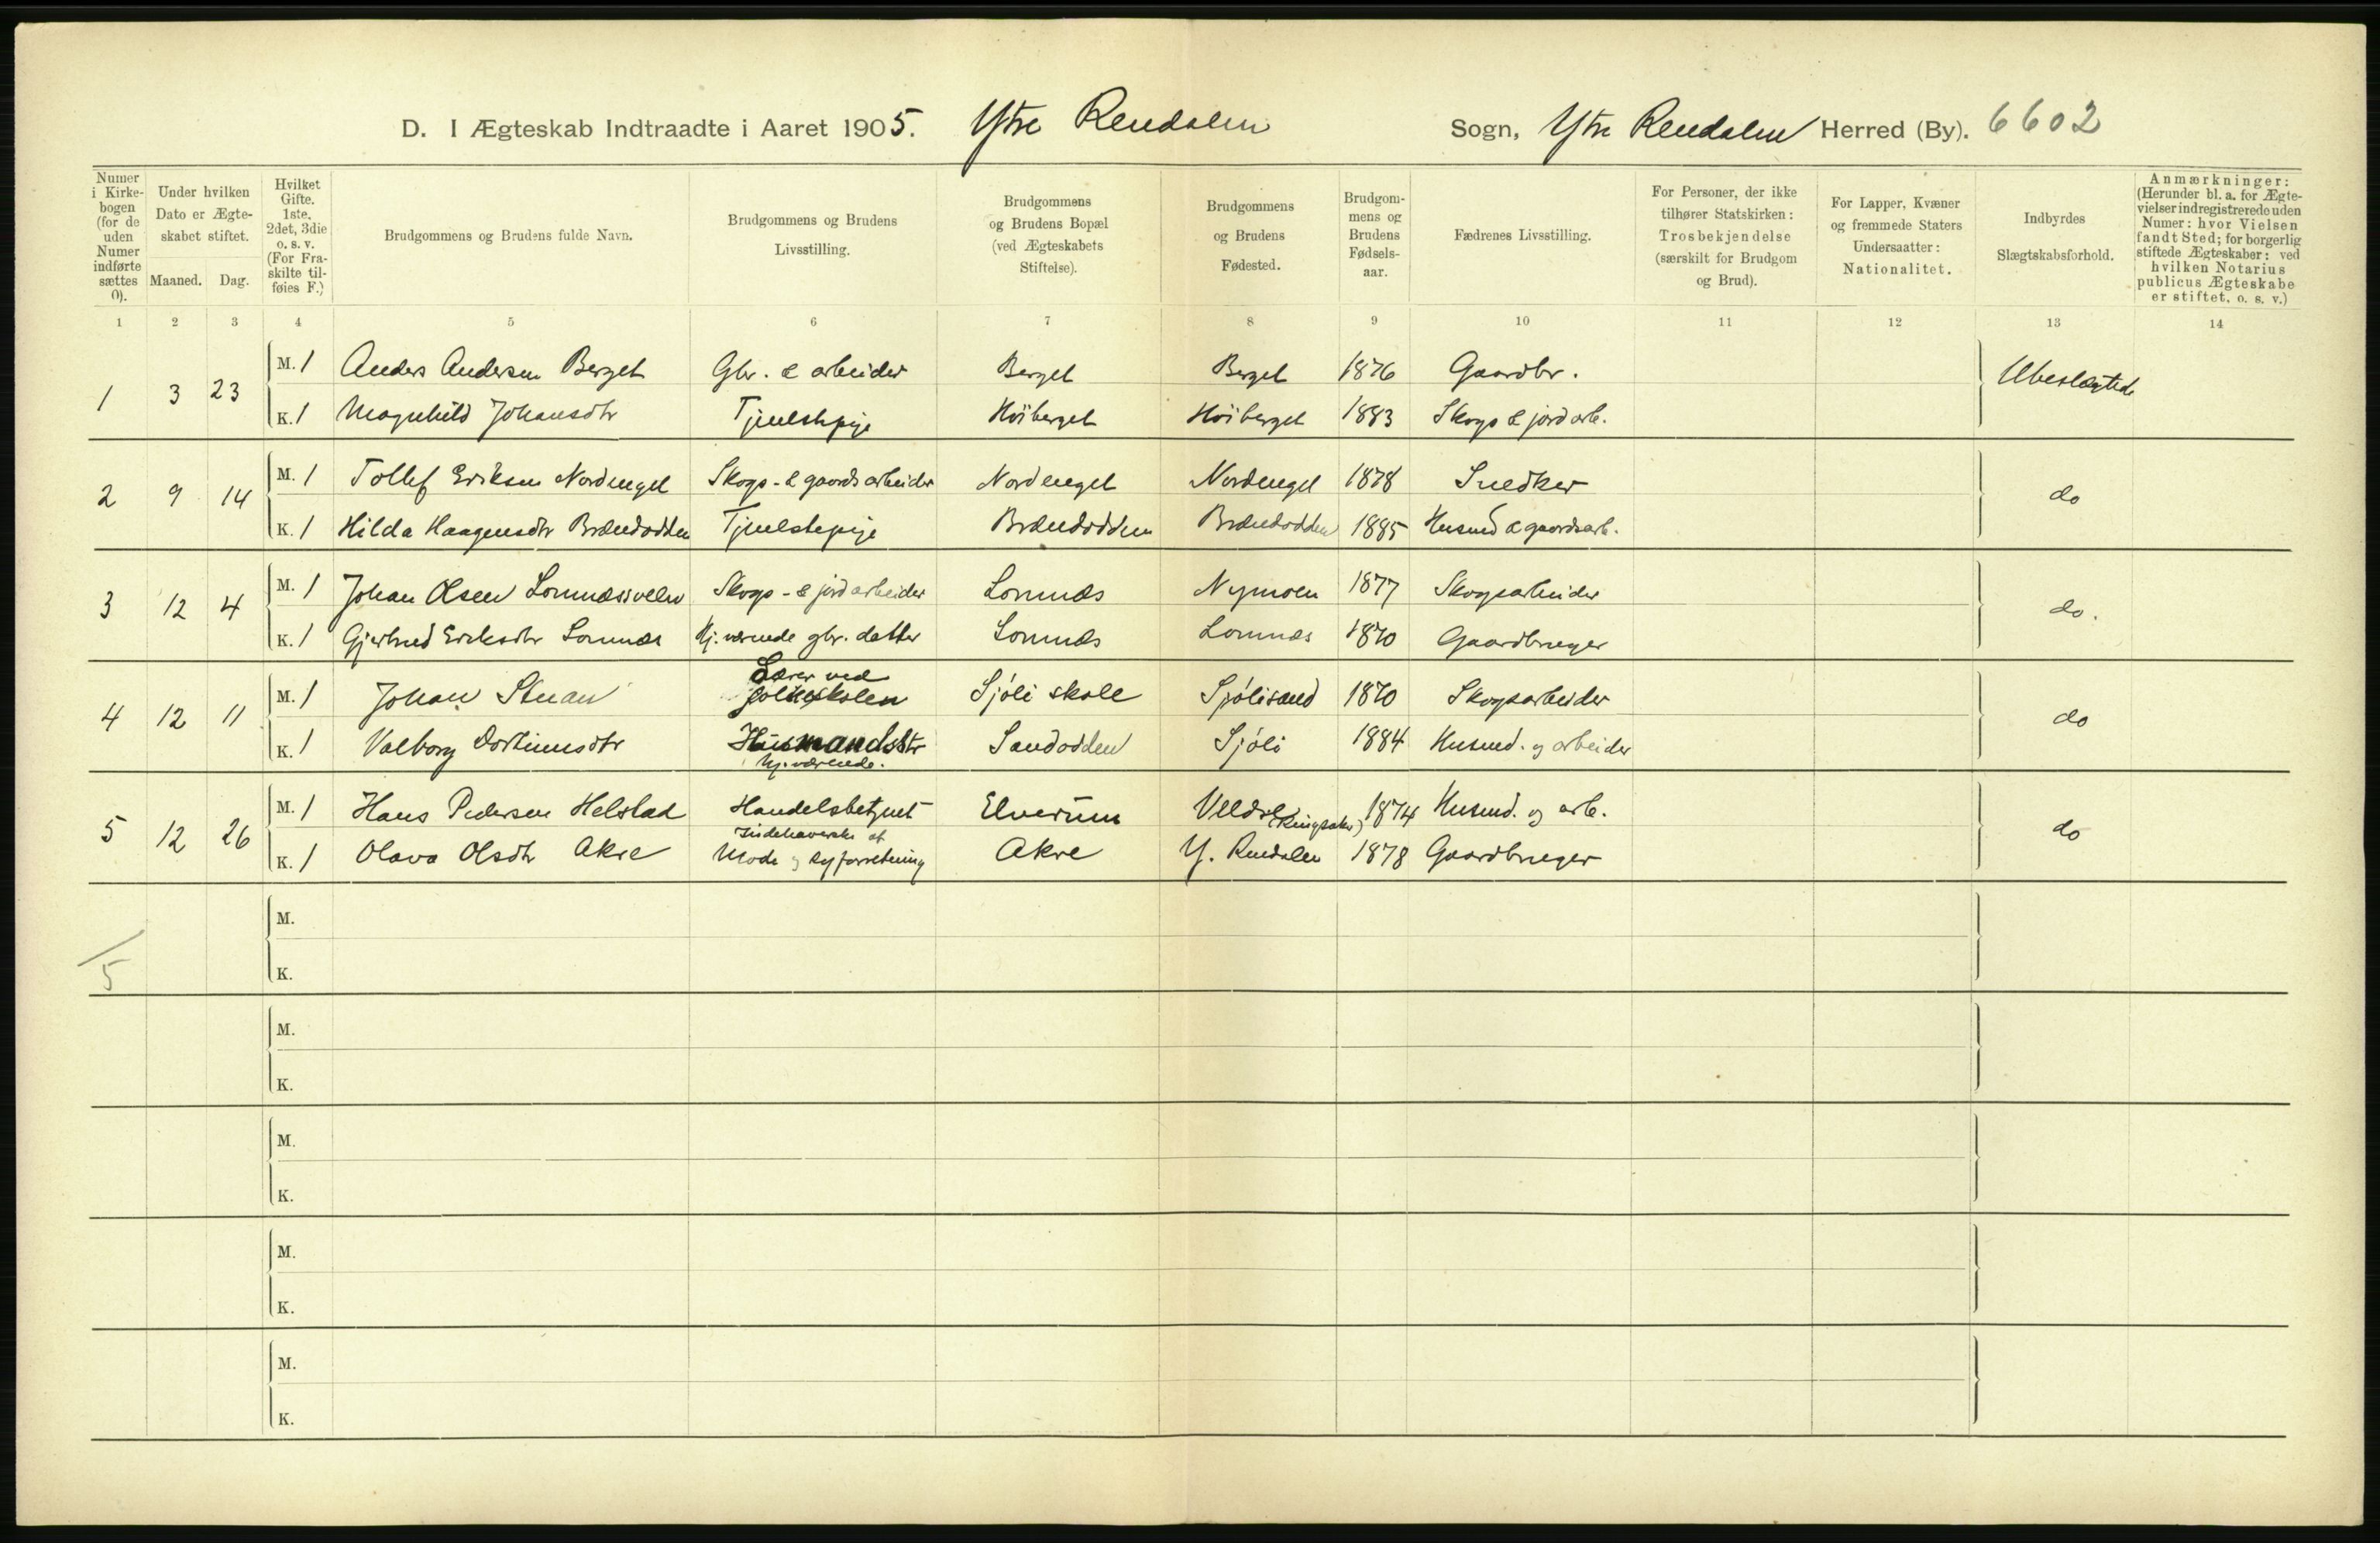 D. I Ægteskab Indtraadte i Aaret 1905. Ytre Rendalen Sogn, Ytre Rendalen Herred (By). 6602
Numer i Kirkebogen (for de uden Numer indførte sættes 0).
Under hvilken Dato er Ægteskabet stiftet.
Maaned. Dag.
Hvilket Gifte. 1ste, 2det, 3die o. s. v. (For Fraskilte tilføies F.)
Brudgommens og Brudens fulde Navn.
Brudgommens og Brudens Livsstilling.
Brudgommens og Brudens Bopæl (ved Ægteskabets Stiftelse).
Brudgommens og Brudens Fødested.
Brudgommens og Brudens Fødselsaar.
Fædrenes Livsstilling.
For Personer, der ikke tilhører Statskirken: Trosbekjendelse (særskilt for Brudgom og Brud).
For Lapper, Kvæner og fremmede Staters Undersaatter: Nationalitet.
Indbyrdes Slægtskabsforhold.
Anmærkninger: (Herunder bl. a. for Ægtevielser indregistrerede uden Numer: hvor Vielsen fandt Sted; for borgerlig stiftede Ægteskaber: ved hvilken Notarius publicus Ægteskabet er stiftet, o. s. v.)
1 2 3 4 5 6 7 8 9 10 11 12 13 14
1 3 23 M. 1 Anders Andersen Berget Gbr. & arbeider Berget Berget 1876 Gaardbr. Ubeslægtede
K. 1 Magnhild Johansdtr Tjenestepige Høiberget Høiberget 1883 Skogs & jordarb.
2 9 14 M. 1 Tollef Eriksen Nordenget Skogs- & gaardsarbeider Nordenget Nordenget 1878 Snedker do
K. 1 Hilda Haagensdtr Brændodden Tjenestepige Brændodden Brændodden 1885 Husmd & gaardsarb.
3 12 4 M. 1 Johan Olsen Lomnæssvelen Skogs- & jordarbeider Lomnæs Nymoen 1877 Skogsarbeider do.
K. 1 Gjertrud Eriksdtr Lomnæs Hj. værende gbr. datter Lomnæs Lomnæs 1870 Gaardbruger
4 12 11 M. 1 Johan Stuan Lærer ved folkeskolen Sjøli skole Sjølisand 1870 Skogsarbeider do
K. 1 Valborg Dortinusdtr Husmandsdtr hj. værende. Sandodden Sjøli 1884 Husmd. og arbeider
5 12 26 M. 1 Hans Pedersen Helstad Handelsbetjent Elverum Veldre (Ringsaker) 1874 Husmd. og arb. do
K. 1 Olava Olsdtr Akre Indehaverske af Mode og syforretning Akre Y. Rendalen 1878 Gaardbruger
M.
5
K.
M.
K.
M.
K.
M.
K.
M.
K.